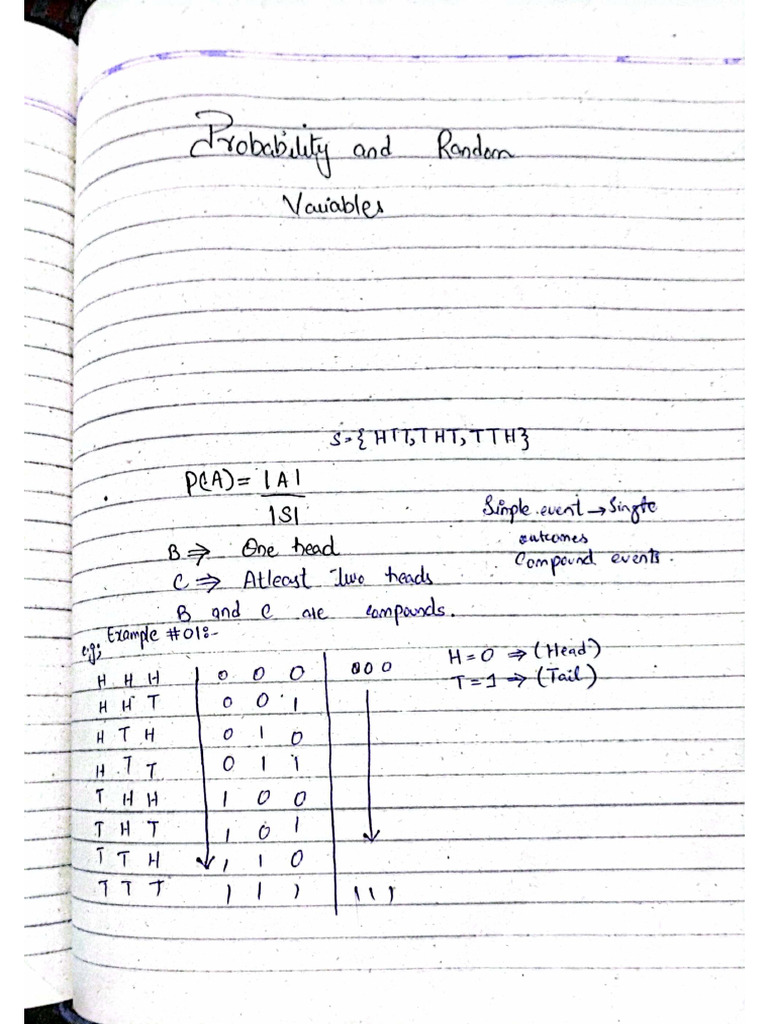 Probability and Random
Variables
S={HTT,THT,TTH}
P(A)=|A|
|S|
Simple event → Single
outcomes
Compound events.
B ⇒ One head
C ⇒ Atleast Two heads
B and C are compounds.
e.g; Example #01:-
H=0 ⇒ (Head)
T=1 ⇒ (Tail)
H H H 0 0 0 000
H H T 0 0 1
H T H 0 1 0
H T T 0 1 1
T H H 1 0 0
T H T 1 0 1
T T H 1 1 0
T T T 1 1 1 111